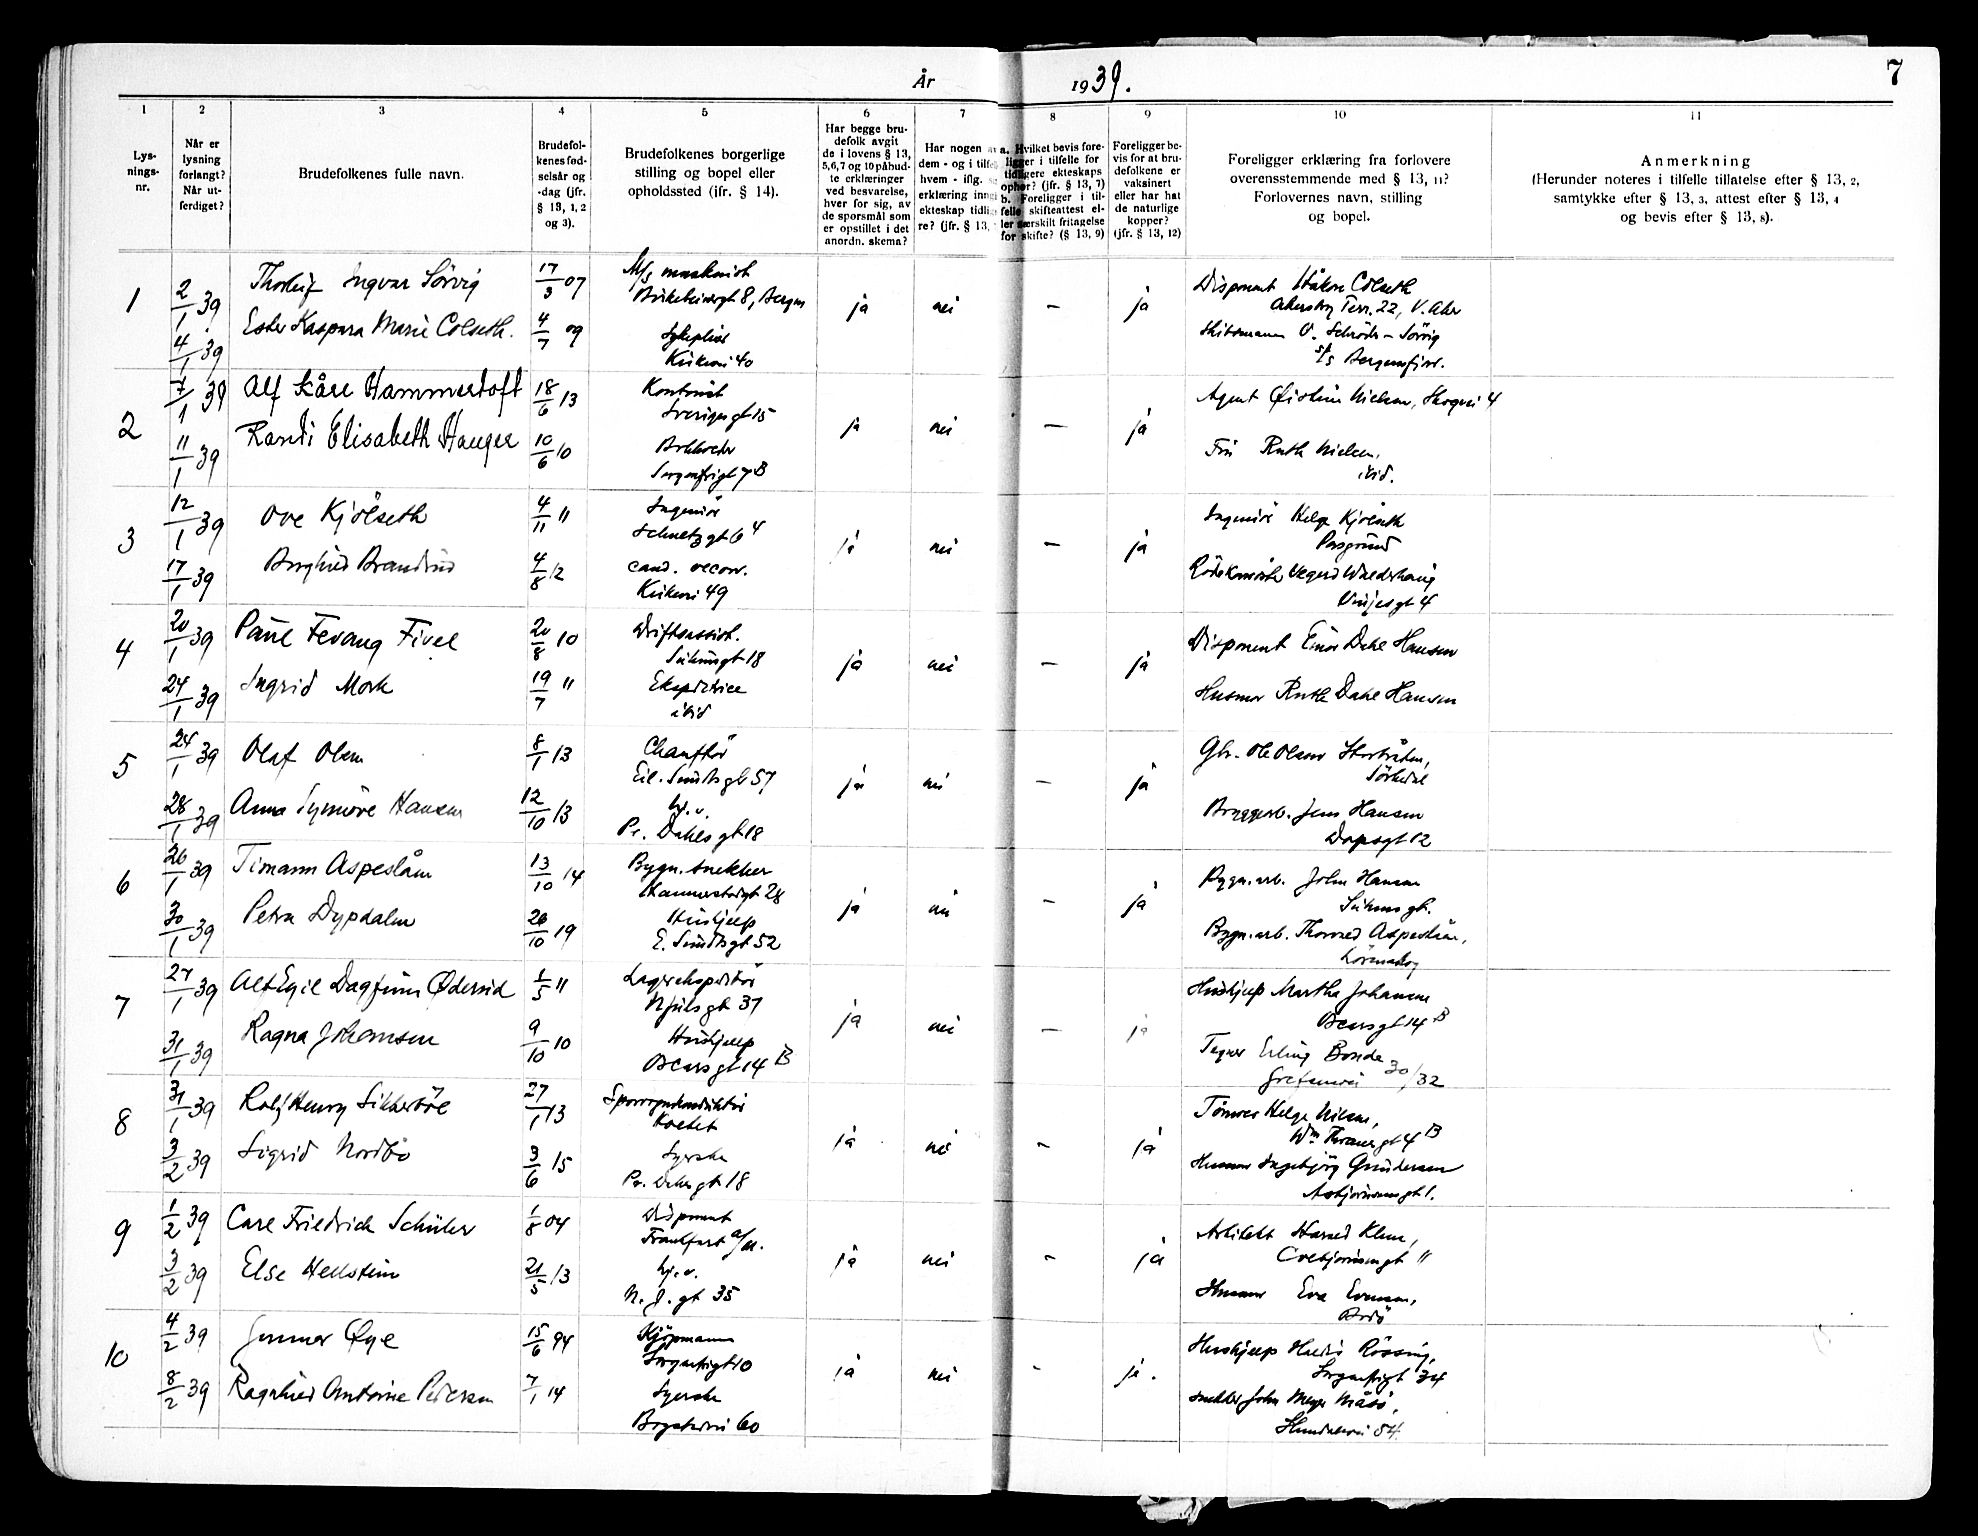 År 1939.
7
1 2 3 4 5 6 7 8 9 10 11
Lys-
nings-
nr.
Når er
lysning
forlangt?
Når ut-
ferdiget?
Brudefolkenes fulle navn.
Brudefol-
kenes fød-
selsår og
-dag (jfr.
§ 13, 1, 2
og 3).
Brudefolkenes borgerlige
stilling og bopel eller
opholdssted (jfr. § 14).
Har begge bru-
defolk avgit
de i lovens § 13,
5,6,7 og 10 påbud-
te erklæringer
ved besvarelse,
hver for sig, av
de spørsmål som
er opstillet i det
anordn. skema?
Har nogen
dem - og i tilfe
hvem - iflg.
erklæring inng
ekteskap tidlig
re? (jfr. § 13,
a. Hvilket bevis fore-
ligger i tilfelle for
tidligere ekteskaps
ophør? (jfr. § 13, 7)
b. Foreligger i til-
felle skifteattest el-
ler særskilt fritagelse
for skifte? (§ 13, 9)
Foreligger be-
vis for at bru-
defolkene er
vaksinert
eller har hat
de naturlige
kopper?
(jfr. § 13, 12)
Foreligger erklæring fra forlovere
overensstemmende med § 13, 11?
Forlovernes navn, stilling
og bopel.
Anmerkning
(Herunder noteres i tilfelle tillatelse efter § 13, 2,
samtykke efter § 13, 3, attest efter § 13, 4
og bevis efter § 13, 8).
1
2/1 39
4/1 39
Thorleif Ingvar Sörvig
Ester Kaspara Marie Colseth.
17/3 07
4/7 09
M/s maskinist
Birkebeinergt 8, Bergen
Sykepleier
Kirkevei 40
ja nei – ja
Disponent Håkon Colseth
Terr. 22, V. Aker
O. Schröder-Sörvig
S/s Bergensfjord.
2
7/1 39
11/1 39
Alf Kåre Hammertoft
Randi Elisabeth Hauger
18/6 13
10/6 10
Kontorist
Sverigesgt 15
Sorgenfrigt 7 B
ja nei – ja
Agent Øistein Nielsen, Skogvei 4
Fru Ruth Nielsen,
ibid.
3
12/1 39
17/1 39
Ove Kjölseth
Borghild Brandrud
4/11 11
4/8 12
Ingeniör
Schwetzgt 6 4
cand. oecon.
Kirkevei 49
ja nei – ja
Ingeniör Helge Kjölseth
Porsgrund
Vegard
Vinjesgt 4
4
20/1 39
24/1 39
Paul Fevang Fivel
Ingrid Mork
20/8 10
19/7 11
Driftsassist.
gt 18
Ekspeditrice
ibid
ja nei – ja
Disponent Einar Dahl Hansen
Husmor Ruth Dahl Hansen
5
24/1 39
28/1 39
Olaf Olsen
Anna Synnöve Hansen
8/1 13
12/10 13
Chaufför
Eil. Sundtsgt 57
hj.v.
Pr. Dahlsgt 18
ja nei – ja
Gbr. Ole Olsen Storbråten,
Sörkedal
Bryggeriarb. Jens Hansen
Dopsgt 12
6
26/1 39
30/1 39
Timann Aspeslåen
Petra Dypdalen
13/10 14
26/10 19
Bygn. snekker
Hammerstadgt 28
Hushjelp
E. Sundtsgt 52
ja nei – ja
Bygn.arb. John Hansen
gt.
Bygn.arb. Thorvald Aspeslåen,
Lörenskog
7
27/1 39
31/1 39
Alf Egil Dagfinn Ødersrud
Ragna Johansen
1/5 11
9/10 10
Lagerekspeditör
Njålsgt 31
Hushjelp
Oscarsgt 14 B
ja nei – ja
Hushjelp Martha Johansen
Oscarsgt 14 B
Erling Bonde
Grefsenvei 30/32
8
31/1 39
3/2 39
Rolf Henry Sikkerböl
Sigrid Nordbö
27/1 13
3/6 15
Sporvognskonduktör
Syerske
Pr. Dahlsgt 18
ja nei – ja
Tömrer Helge Nilsen,
Wm Thranesgt 4 B
Husmor Ingebjörg Gundersen
Asbjörnsensgt 1.
9
1/2 39
3/2 39
Carl Friedrich Schüler
Else Hellstein
1/8 04
21/5 13
Disponent
Frankfurt a/M.
hj.v.
N. J. gt 35
ja nei – ja
Arkitekt Harald Klem,
gt 11
Husmor Eva Evensen,
Bodö
10
4/2 39
8/2 39
Gunnar Øye
Ragnhild Antonie Pedersen
15/6 94
7/1 14
Kjöpmann
Sorgenfrigt 10
Syerske
Bogstadvei 60
ja nei – ja.
Hushjelp Hildis Rössing,
Sorgenfrigt 34
Snekker John Meyer Måsö,
54.